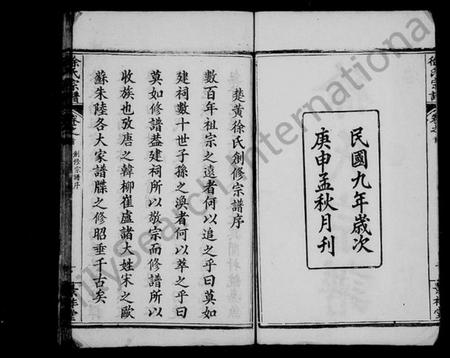 民國九年歲次
庚申孟秋月刊
楚黃徐氏創修宗譜序
數百年祖宗之遠者何以追之乎曰莫如
建祠數十世子孫之渙者何以萃之乎曰
莫如修譜蓋建祠所以敬宗而修譜所以
收族也攷唐之韓柳崔盧諸大姓宋之歐
蘇朱陸各大家譜牒之修昭垂千古矣
徐氏宗譜
卷之首
創修宗譜序
MySearch International